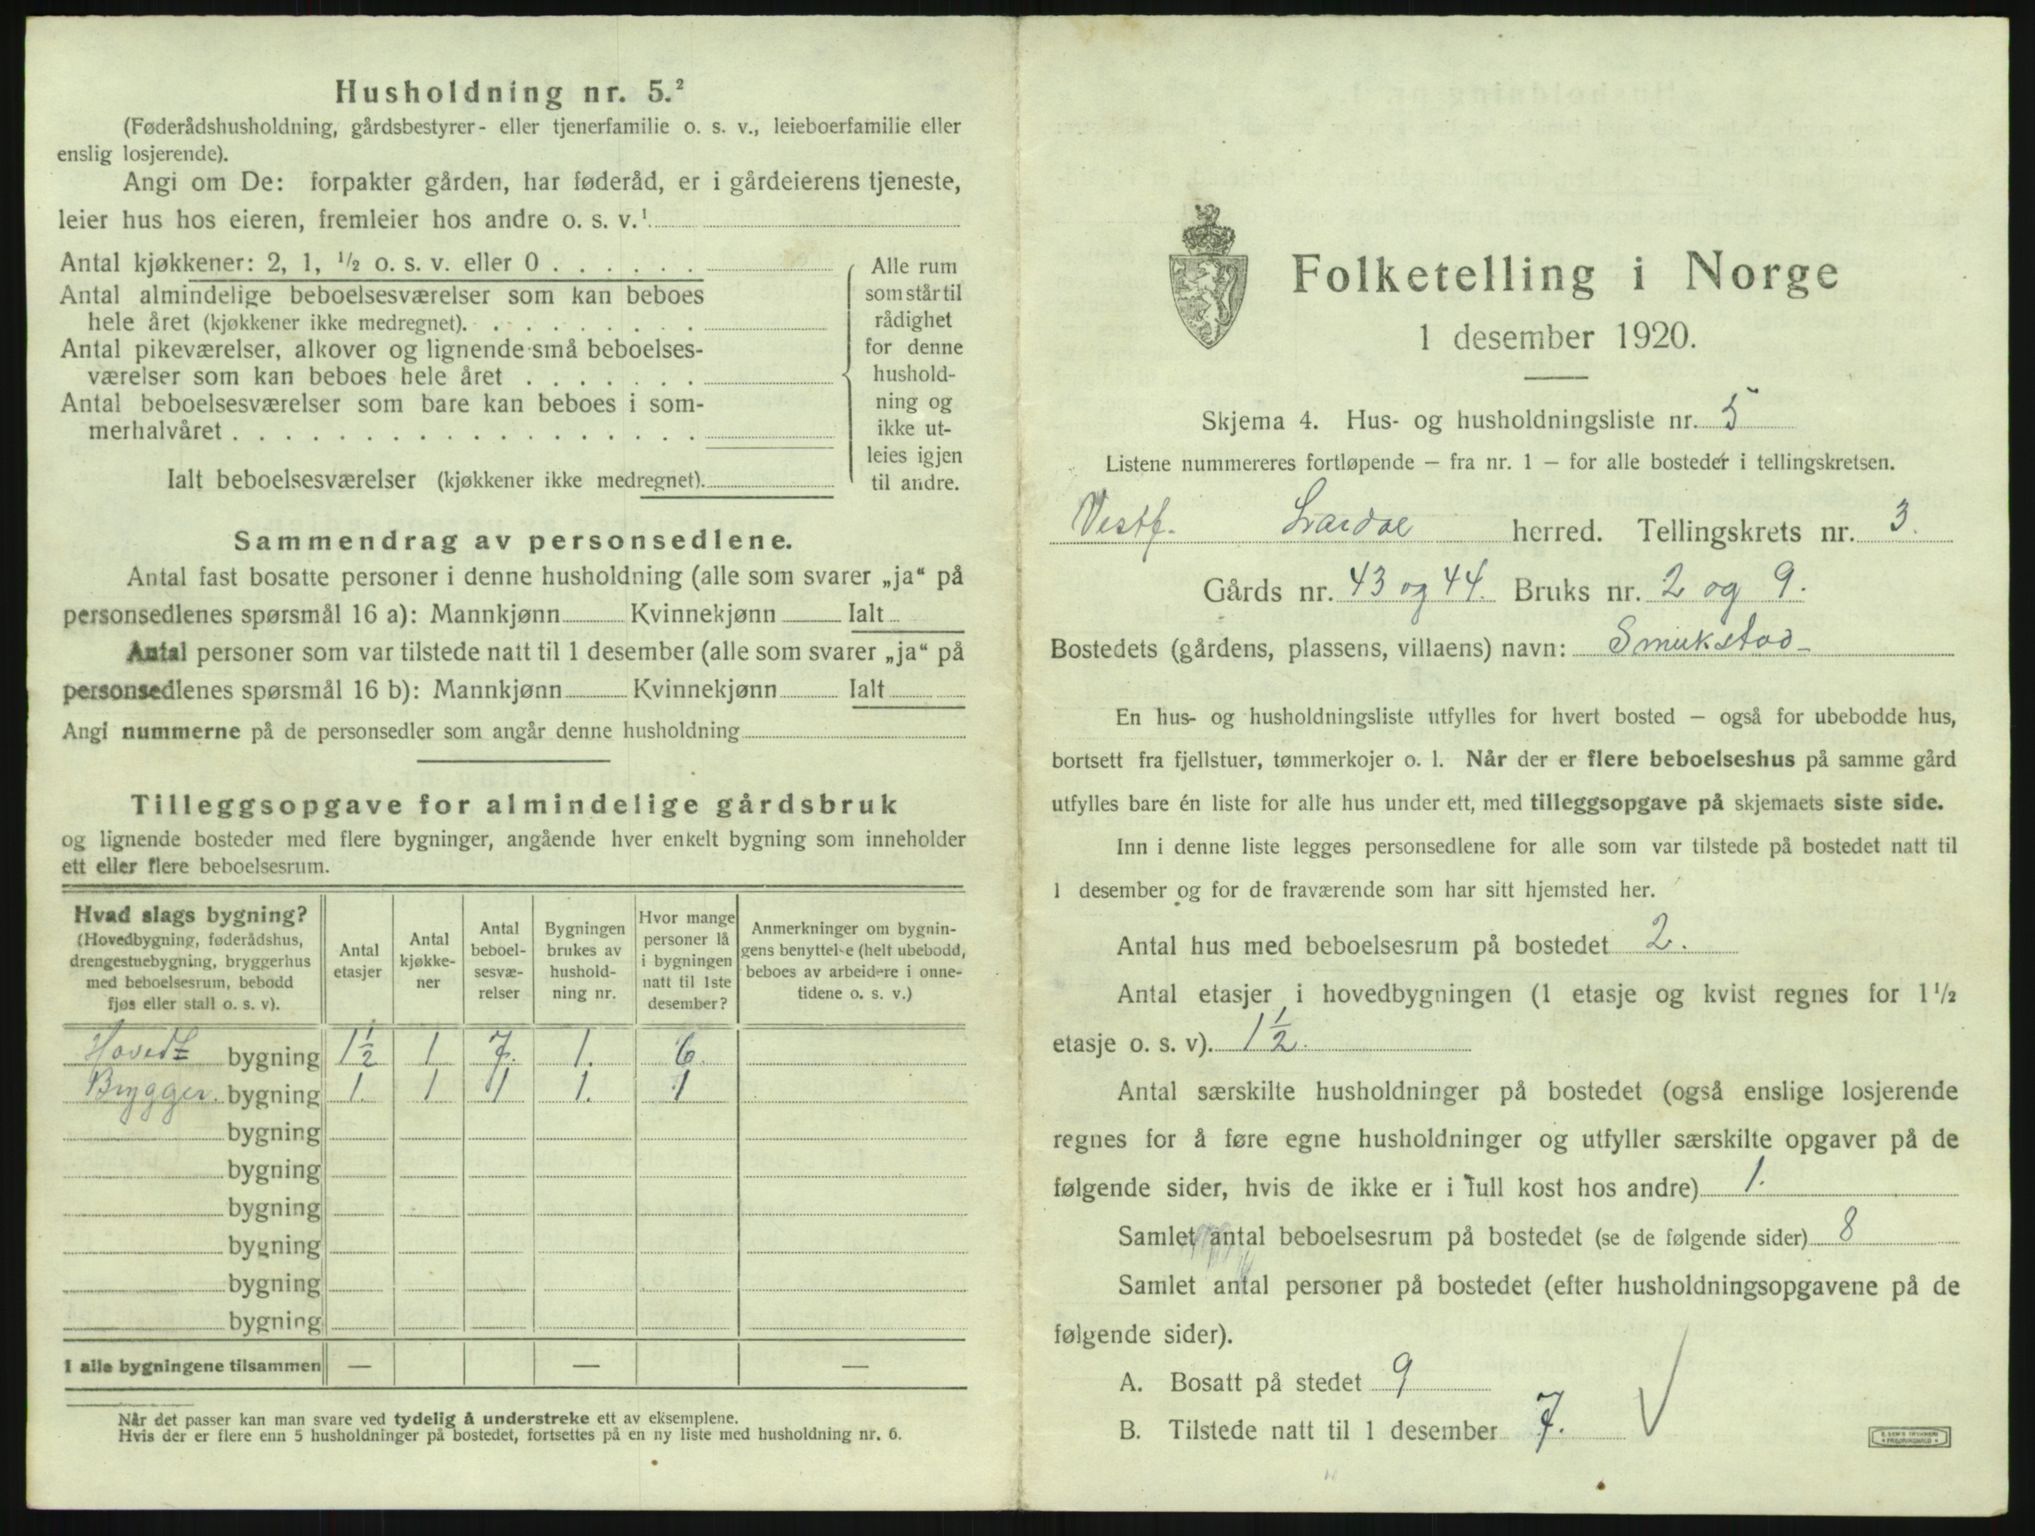 Husholdning nr. 5.²
(Føderådshusholdning, gårdsbestyrer- eller tjenerfamilie o. s. v., leieboerfamilie eller
enslig losjerende).
Angi om De: forpakter gården, har føderåd, er i gårdeierens tjeneste,
leier hus hos eieren, fremleier hos andre o. s. v.¹
Antal kjøkkener: 2, 1, ½ o. s. v. eller 0 . . . . . .
Antal almindelige beboelsesværelser som kan beboes
hele året (kjøkkener ikke medregnet). . . . . . . . .
Antal pikeværelser, alkover og lignende små beboelses-
værelser som kan beboes hele året . . . . . . .
Antal beboelsesværelser som bare kan beboes i som-
merhalvåret . . . . . . . . . . . . . . . . . .
Ialt beboelsesværelser (kjøkkener ikke medregnet).
Alle rum
som står til
rådighet
for denne
hushold-
ning og
ikke ut-
leies igjen
til andre.
Sammendrag av personsedlene.
Antal fast bosatte personer i denne husholdning (alle som svarer „ja“ på
personsedlenes spørsmål 16 a): Mannkjønn Kvinnekjønn Ialt
Antal personer som var tilstede natt til 1 desember (alle som svarer „ja“ på
personsedlenes spørsmål 16 b): Mannkjønn Kvinnekjønn Ialt
Angi nummerne på de personsedler som angår denne husholdning
Tilleggsopgave for almindelige gårdsbruk
og lignende bosteder med flere bygninger, angående hver enkelt bygning som inneholder
ett eller flere beboelsesrum.
Hvad slags bygning?
(Hovedbygning, føderådshus,
drengestuebygning, bryggerhus
med beboelsesrum, bebodd
fjøs eller stall o. s. v).
Antal
etasjer
Antal
kjøkke-
ner
Antal
beboel-
sesvæ-
relser
Bygningen
brukes av
hushold-
ning nr.
Hvor mange
personer lå
i bygningen
natt til 1ste
desember?
Anmerkninger om bygnin-
gens benyttelse (helt ubebodd,
beboes av arbeidere i onne-
tidene o. s. v.)
Hovedt bygning 1½ 1 7. 1. 6.
Brygger. bygning 1. 1 1 1. 1
bygning
bygning
bygning
bygning
bygning
bygning
I alle bygningene tilsammen — — —
Når det passer kan man svare ved tydelig å understreke ett av eksemplene.
Hvis der er flere enn 5 husholdninger på bostedet, fortsettes på en ny liste med husholdning nr. 6.
Folketelling i Norge
1 desember 1920.
Skjema 4. Hus- og husholdningsliste nr. 5
Listene nummereres fortløpende — fra nr. 1 — for alle bosteder i tellingskretsen.
Vestf. Lardal herred. Tellingskrets nr. 3.
Gårds nr. 43 og 44. Bruks nr. 2 og 9.
Bostedets (gårdens, plassens, villaens) navn: Smukstad
En hus- og husholdningsliste utfylles for hvert bosted — også for ubebodde hus,
bortsett fra fjellstuer, tømmerkojer o. l. Når der er flere beboelseshus på samme gård
utfylles bare én liste for alle hus under ett, med tilleggsopgave på skjemaets siste side.
Inn i denne liste legges personsedlene for alle som var tilstede på bostedet natt til
1 desember og for de fraværende som har sitt hjemsted her.
Antal hus med beboelsesrum på bostedet 2.
Antal etasjer i hovedbygningen (1 etasje og kvist regnes for 1½
etasje o. s. v). 1½.
Antal særskilte husholdninger på bostedet (også enslige losjerende
regnes for å føre egne husholdninger og utfyller særskilte opgaver på de
følgende sider, hvis de ikke er i full kost hos andre) 1.
Samlet antal beboelsesrum på bostedet (se de følgende sider) 8
Samlet antal personer på bostedet (efter husholdningsopgavene på de
følgende sider).
A. Bosatt på stedet 9
B. Tilstede natt til 1 desember 7.